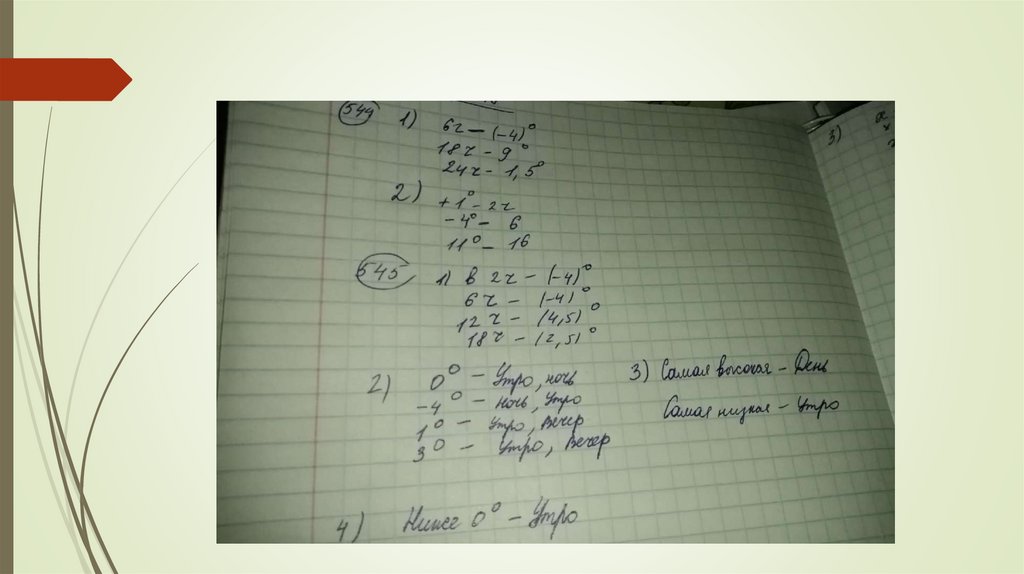 544 1) 6ч – (–4)°
18ч – 9°
24ч – 1,5°
2) +1° – 2ч
–4° – 6
11° – 16
545 1) в 2ч – (–4)°
6ч – (–4)°
12ч – (4,5)°
18ч – (2,5)°
2) 0° – Утро, ночь
–4° – ночь, Утро
1° – Утро, Вечер
3° – Утро, Вечер
3) Самая высокая – День
Самая низкая – Утро
4) Ниже 0° – Утро
3) x